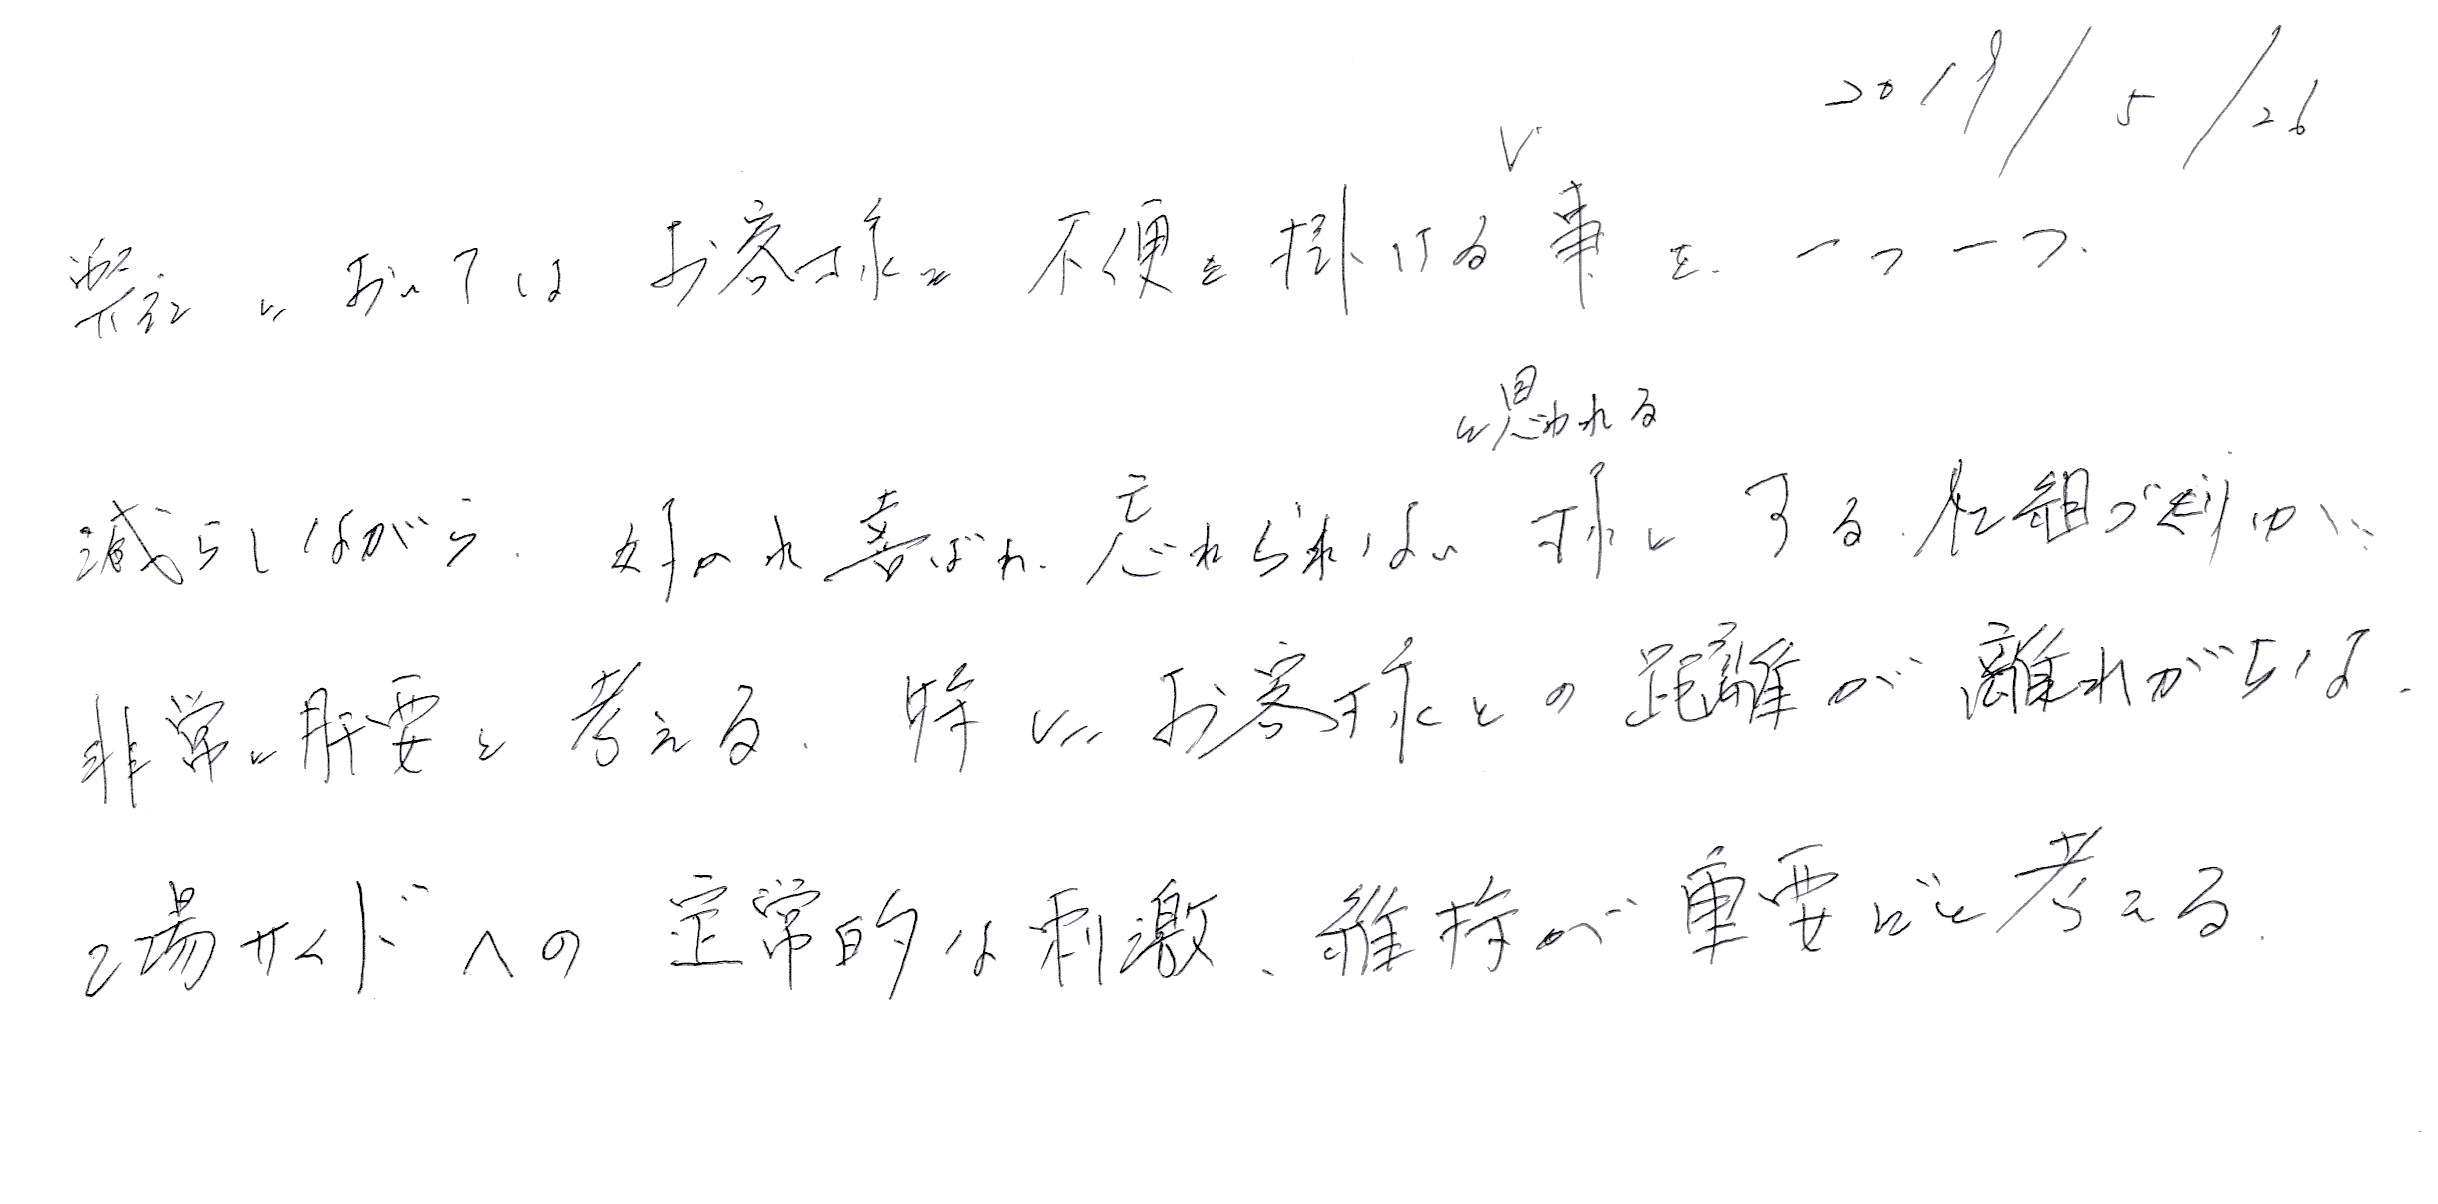 2019/5/26
弊社においてはお客様に不便を掛ける事を、一つ一つ、
と思われる
減らしながら、好かれ喜ばれ、忘れられない様にする仕組づくりが
非常に肝要と考える。特にお客様との距離が離れがちな、
工場サイドへの定常的な刺激、維持が重要だと考える。